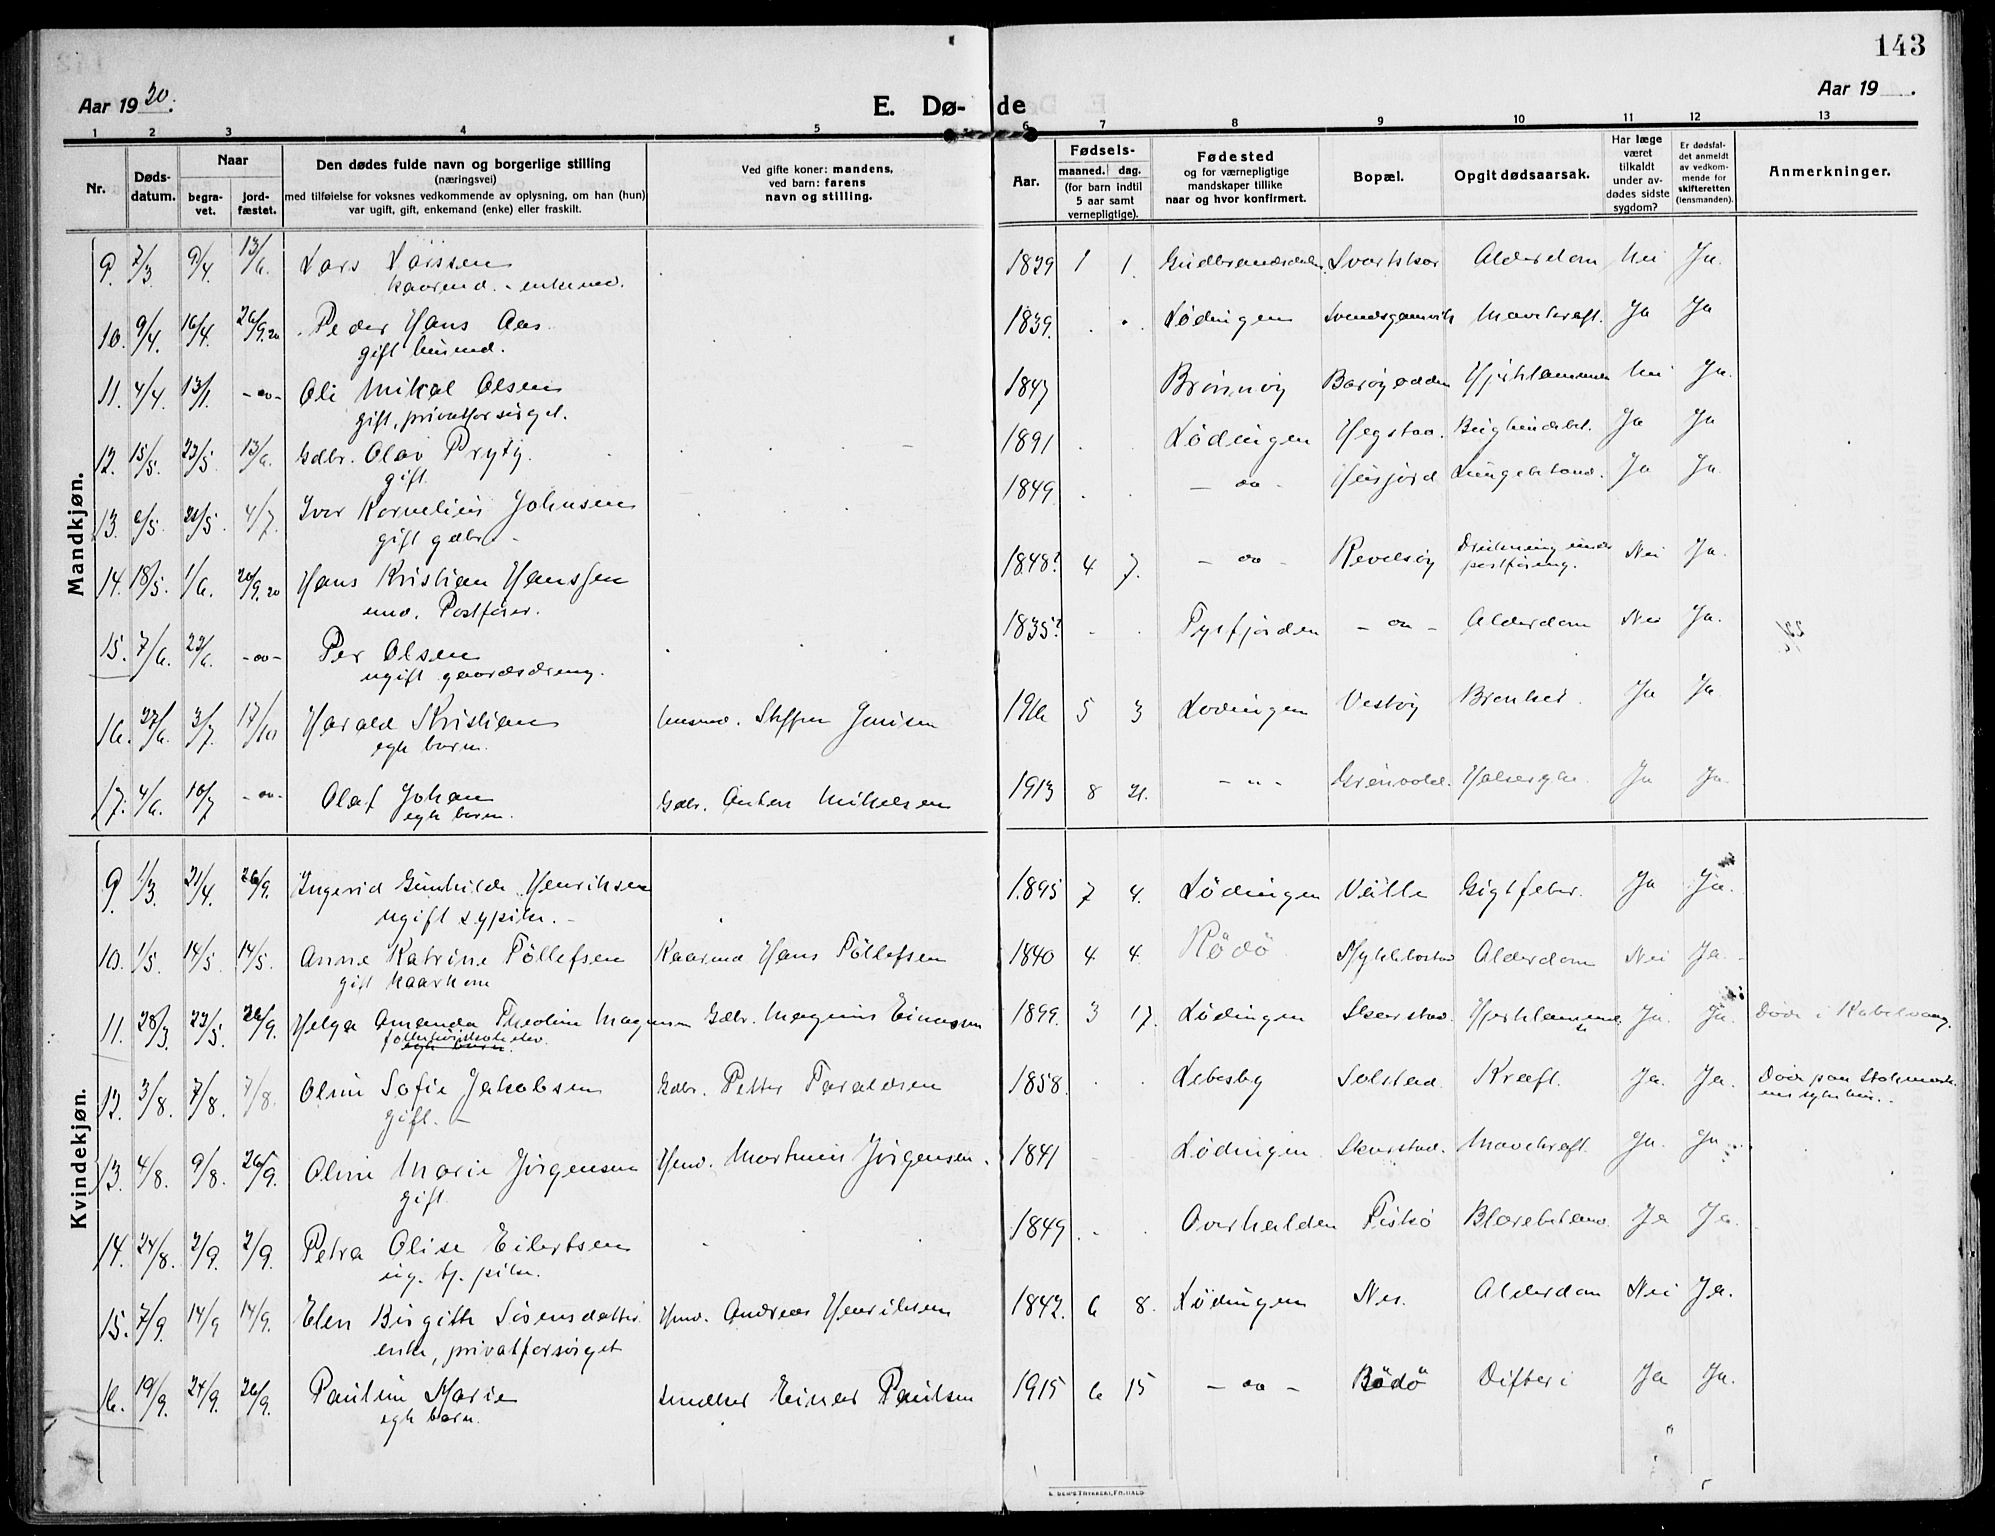 143
Aar 1920.
E. Dø- de
Aar 19 .
1 2 3 4 5 6 7 8 9 10 11 12 13
Nr.
Døds-
datum.
Naar
begra-
vet.
jord-
fæstet.
Den dødes fulde navn og borgerlige stilling
(næringsvei)
med tilføielse for voksnes vedkommende av oplysning, om han (hun)
var ugift, gift, enkemand (enke) eller fraskilt.
Ved gifte koner: mandens,
ved barn: farens
navn og stilling.
Aar.
Fødsels-
maaned. dag.
(for barn indtil
5 aar samt
vernepligtige).
Fødested
og for værnepligtige
mandskaper tillike
naar og hvor konfirmert.
Bopæl.
Opgit dødsaarsak.
Har læge
været
tilkaldt
under av-
dødes sidste
sygdom?
Er dødsfal-
det anmeldt
av vedkom-
mende for
skifteretten
(lensmanden).
Anmerkninger.
Mandkjøn.
9. 7/3 9/4 13/6 Lars Larssen 1839 1 1. Gudbrandsdalen Alderdom Nei Ja.
10. 9/4. 16/4. 26/9.20 Peder Hans Aas 1839. Lødingen Mavekræft. Ja Ja
gift husmd.
11. 4/4. - oo - Ole Mikal Olsen 1847 Brønnøy Barøyodden Nei Ja.
gift, privatforsørget.
12. 15/5. 23/5 13/6 Gdbr. Olav Pryty 1891 Lødingen Ja Ja
gift
13. 6/5. 4/7. Ivar Kornelius Johnsen 1849. - oo - Husjord Lungebetænd. Ja Ja.
gift gdbr.
14. 18/5. 1/6. 26/9.20 Hans Kristian Hanssen 1848? 4 7. - oo - Revelsøy Drukning under Nei Ja.
postføring.
Postfører.
15. 7/6. 22/6. - oo - Per Olsen 1835? Tysfjorden - oo - Alderdom Nei Ja.
ugift gaardsdreng.
16. 27/6. 3/7. 17/10 Harald Kristian husmd. Steffen Jensen 5 3 Lødingen Vestøy Ja Ja
egte barn.
17. 4/6. 10/7 - oo - Olaf Johan Gdbr. Anton Mikelsen 1913 8 21. - " - Ja Ja
egte barn.
Kvindekjøn.
9. 1/3. 21/4. 26/9. Ingerid Gunhilde Henriksen 1895 7 4. Lødingen Gigtfeber. Ja Ja.
ugift sypike.
10. 1/5. 14/5 14/5. Anne Katrine Tøllefsen Kaarmd Hans Tøllefsen 1840 4 4. Rødö Myklebostad Alderdom Nei Ja.
gift kaarkone
11. 28/3. 23/5. 26/9. Helga Amanda Theoline Magnussen Gdbr. Magnus Einarsen 1899. 3 17. Lødingen Skarstad. Ja. Ja. Døde i Kabelvaag.
egte barn.
12. 3/8. 7/8. 7/8. Oline Sofie Jakobsen Gdbr. Petter Taraldsen 1858. Lebesby Solstad. Kræft. Ja. Ja. Døde paa Stokmark-
nes sykehus.
gift.
13. 4/8. 9/8. 26/9. Oline Marie Jørgensen Hmd. Martinus Jørgensen. 1841 Lødingen Skarstad. Mavekræft. Ja. Ja
gift.
14. 24/8. 2/9. 2/9. Petra Olise Eilertsen 1849 Overhalden Fiskö Blærebetænd. Ja Ja.
ug. tj. pike.
15. 7/9. 14/9 14/9. Elen Birgitte Sørensdatter Hmd. Andreas Henriksen 1842. 6 8. Lødingen Nes. Alderdom Nei Ja.
enke, privatforsørget
16. 19/9. 24/9. 26/9. Pauline Marie Snedker Einar Paulsen 1915 6 15 - oo - Bödö Difteri Ja Ja.
egte barn.